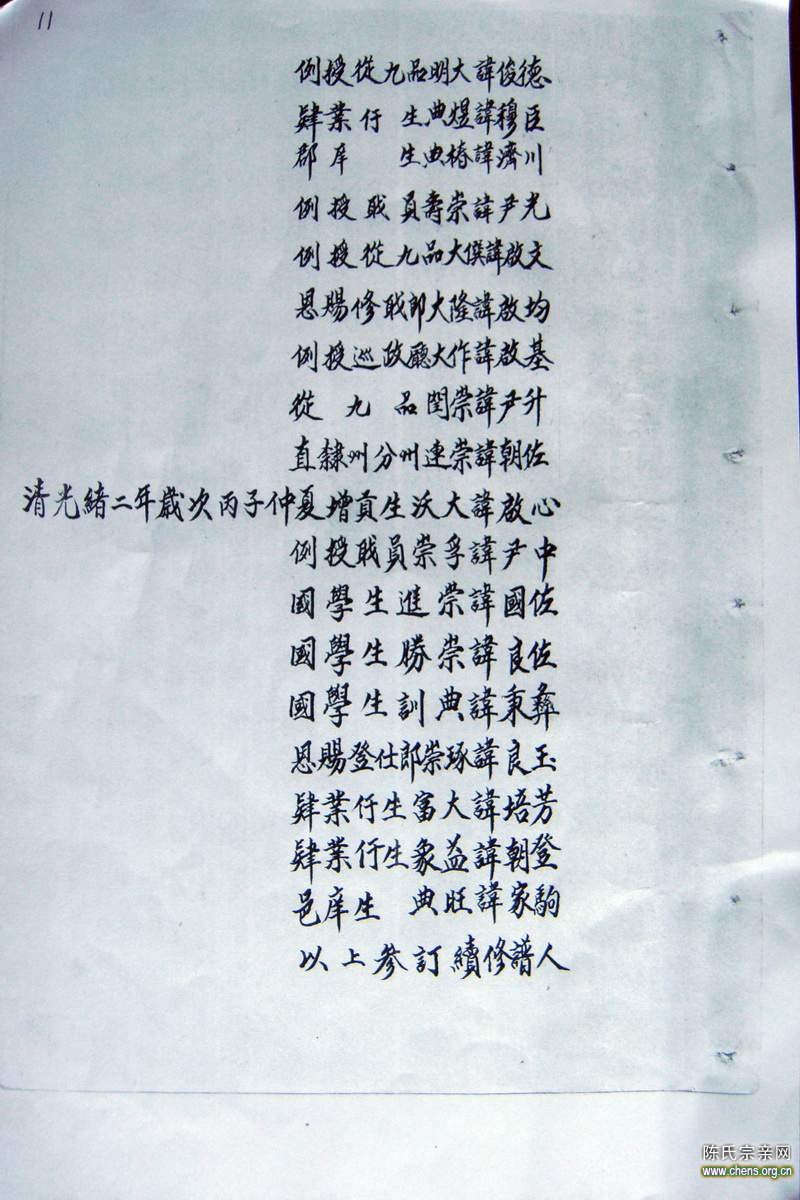 11
例授從九品明大諱俊德
肄業行生典煜諱穆臣
郡庠生典椿諱濟川
例授職員壽崇諱尹光
例授從九品大僎諱啟文
恩賜修職郎大隆諱啟均
例授巡政廳大作諱啟基
從九品閏崇諱尹升
直隸州分州連崇諱朝佐
清光緒二年歲次丙子仲夏增貢生沃大諱啟心
例授職員崇孚諱尹中
國學生進崇諱國佐
國學生勝崇諱良佐
國學生訓典諱秉彝
恩賜登仕郎崇琢諱良玉
肄業行生富大諱培芳
肄業行生象益諱朝登
邑庠生典旺諱家駒
以上參訂續修譜人
陈氏宗亲网
www.chens.org.cn